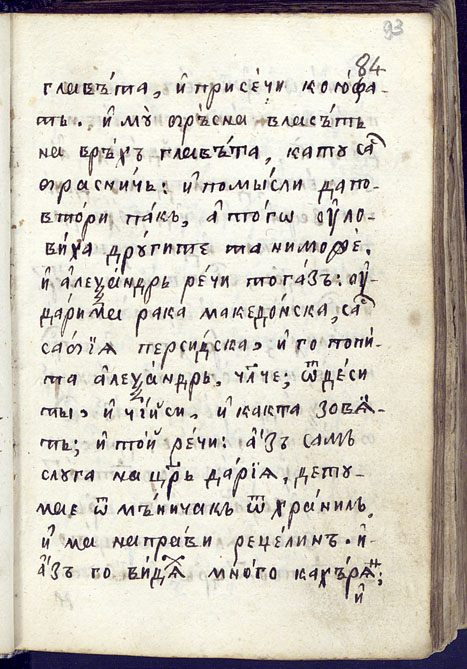 93
84
главѣ́та, и҆ присѣ́чи кого́фа-
ть. и҆ му̀ ѻтрѣсна власѣ́ть
на врѣхъ главѣ́та, като сѧ̑
ѻтрасни́чь: и҆ помы́сли да по-
втори́ па́кь, а҆ то́гѡ ᲂу҆ло-
ви́ха дрꙋ́гите та ни може́.
и҆ а҆леѯа́ндрь ре́чи тога́зъ: ᲂу҆-
да́ри ма рака македо́нска, са̑
са́бїѧ перси́дска, и҆ го попи́-
та а҆леѯа́ндрь, чл҃че; ѿде́ си
ты̀, и҆ чі́й си, и҆ ка́кта зовѧ́-
ть; и҆ то́й ре́чи: а҆́зъ самь
слуга на цр҃ь да́рїѧ, дету-
мае ѿ мъ́ничакь ѿхра́ниль,
и҆ ма напра́ви рецели́нъ. и҆
а҆́зъ го ви́дѧⷯ мно́го кахъ́рѧⷩ;
и҆